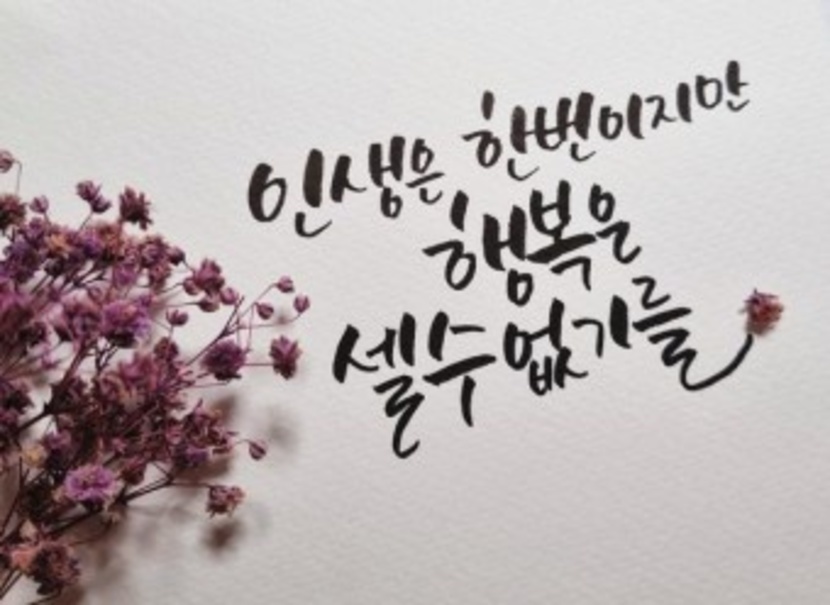 인생은 한번이지만
행복은
셀수없기를